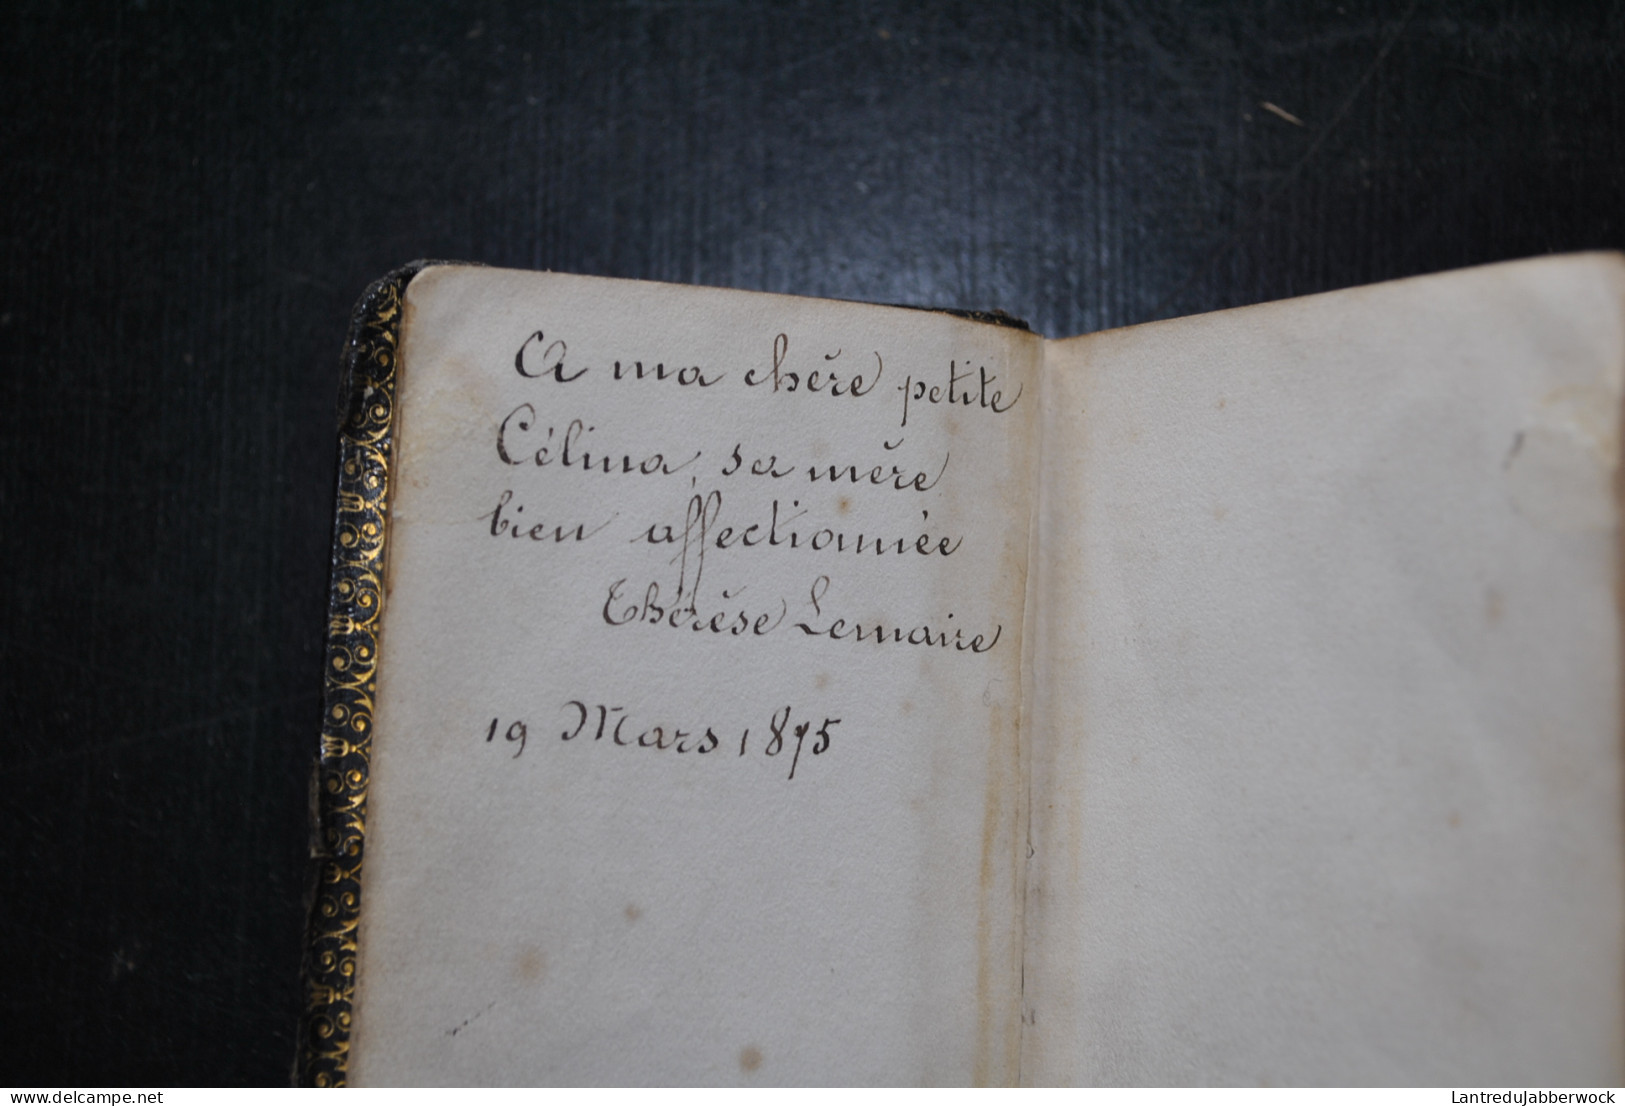 A ma chère petite
Célina, sa mère
bien affectionnée
Thérèse Lemaire
19 Mars 1875
delcampe.net
LantreduJabberwock